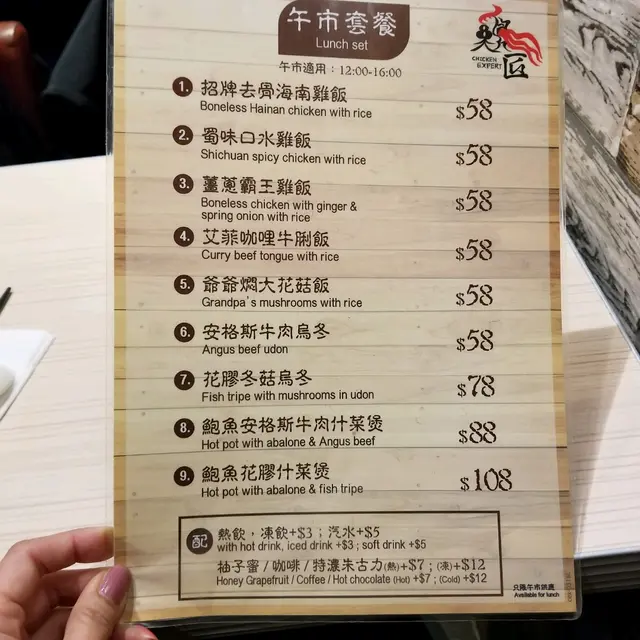 午市套餐
Lunch set
午市適用：12:00-16:00
CHICKEN
EXPERT
匠
1. 招牌去骨海南雞飯
Boneless Hainan chicken with rice
$58
2. 蜀味口水雞飯
Shichuan spicy chicken with rice
$58
3. 薑蔥霸王雞飯
Boneless chicken with ginger &
spring onion with rice
$58
4. 艾菲咖哩牛脷飯
Curry beef tongue with rice
$58
5. 爺爺燜大花菇飯
Grandpa's mushrooms with rice
$58
6. 安格斯牛肉烏冬
Angus beef udon
$58
7. 花膠冬菇烏冬
Fish tripe with mushrooms in udon
$78
8. 鮑魚安格斯牛肉什菜煲
Hot pot with abalone & Angus beef
$88
9. 鮑魚花膠什菜煲
Hot pot with abalone & fish tripe
$108
配
熱飲，凍飲+$3；汽水+$5
with hot drink, iced drink +$3 ; soft drink +$5
柚子蜜 / 咖啡 / 特濃朱古力(熱)+$7；(凍)+$12
Honey Grapefruit / Coffee / Hot chocolate (Hot) +$7 ; (Cold) +$12
Available for lunch